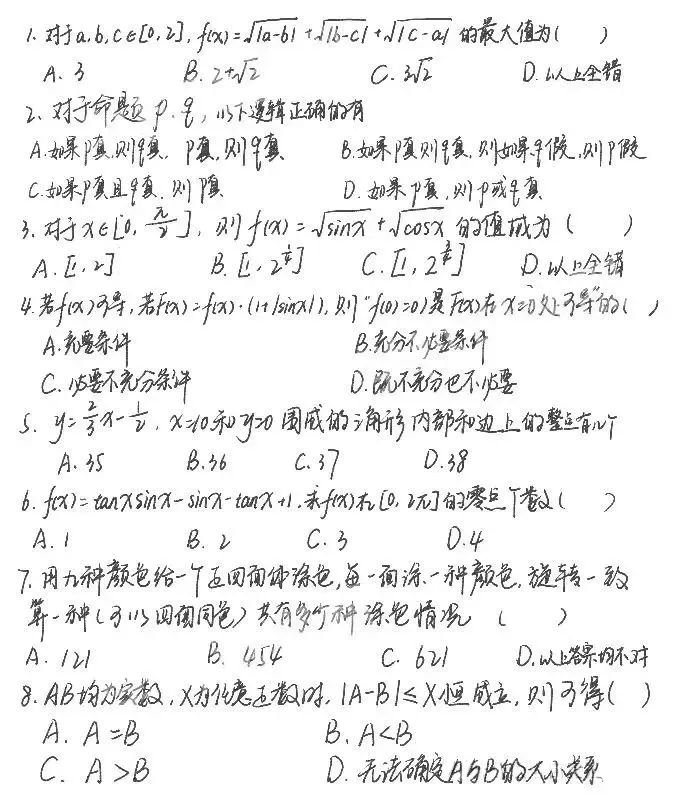 1. 对于a,b,c∈[0,2], f(x)=√|a-b|+√|b-c|+√|c-a| 的最大值为( )
A. 3 B. 2+√2 C. 3√2 D. 以上全错
2. 对于命题 p、q, 以下逻辑正确的有
A. 如果p真,则q真, p真,则q真 B. 如果p真则q真,则如果q假,则p假
C. 如果p真且q真,则p真 D. 如果p真,则p或q真
3. 对于x∈[0, π/2], 则 f(x)=√sinx+√cosx 的值域为( )
A. [1,2] B. [1, 2^] C. [1, 2^] D. 以上全错
4. 若f(x)可导,若F(x)=f(x)·(1+|sinx|),则"f(0)=0"是F(x)在x=0处可导"的( )
A. 充要条件 B. 充分不必要条件
C. 必要不充分条件 D. 既不充分也不必要
5. y=2/3x-1/2, x=10和y=0围成的三角形内部和边上的整点有几个
A. 35 B. 36 C. 37 D. 38
6. f(x)=tanxsinx-sinx-tanx+1,求f(x)在[0,2π]的零点个数( )
A. 1 B. 2 C. 3 D. 4
7. 用九种颜色给一个正四面体涂色,每一面涂一种颜色,旋转一致
算一种(可以四面同色)共有多少种涂色情况 ( )
A. 121 B. 454 C. 621 D. 以上答案均不对
8. AB均为实数, X为任意正数时, |A-B|≤X恒成立,则可得( )
A. A=B B. A<B
C. A>B D. 无法确定A与B的大小关系